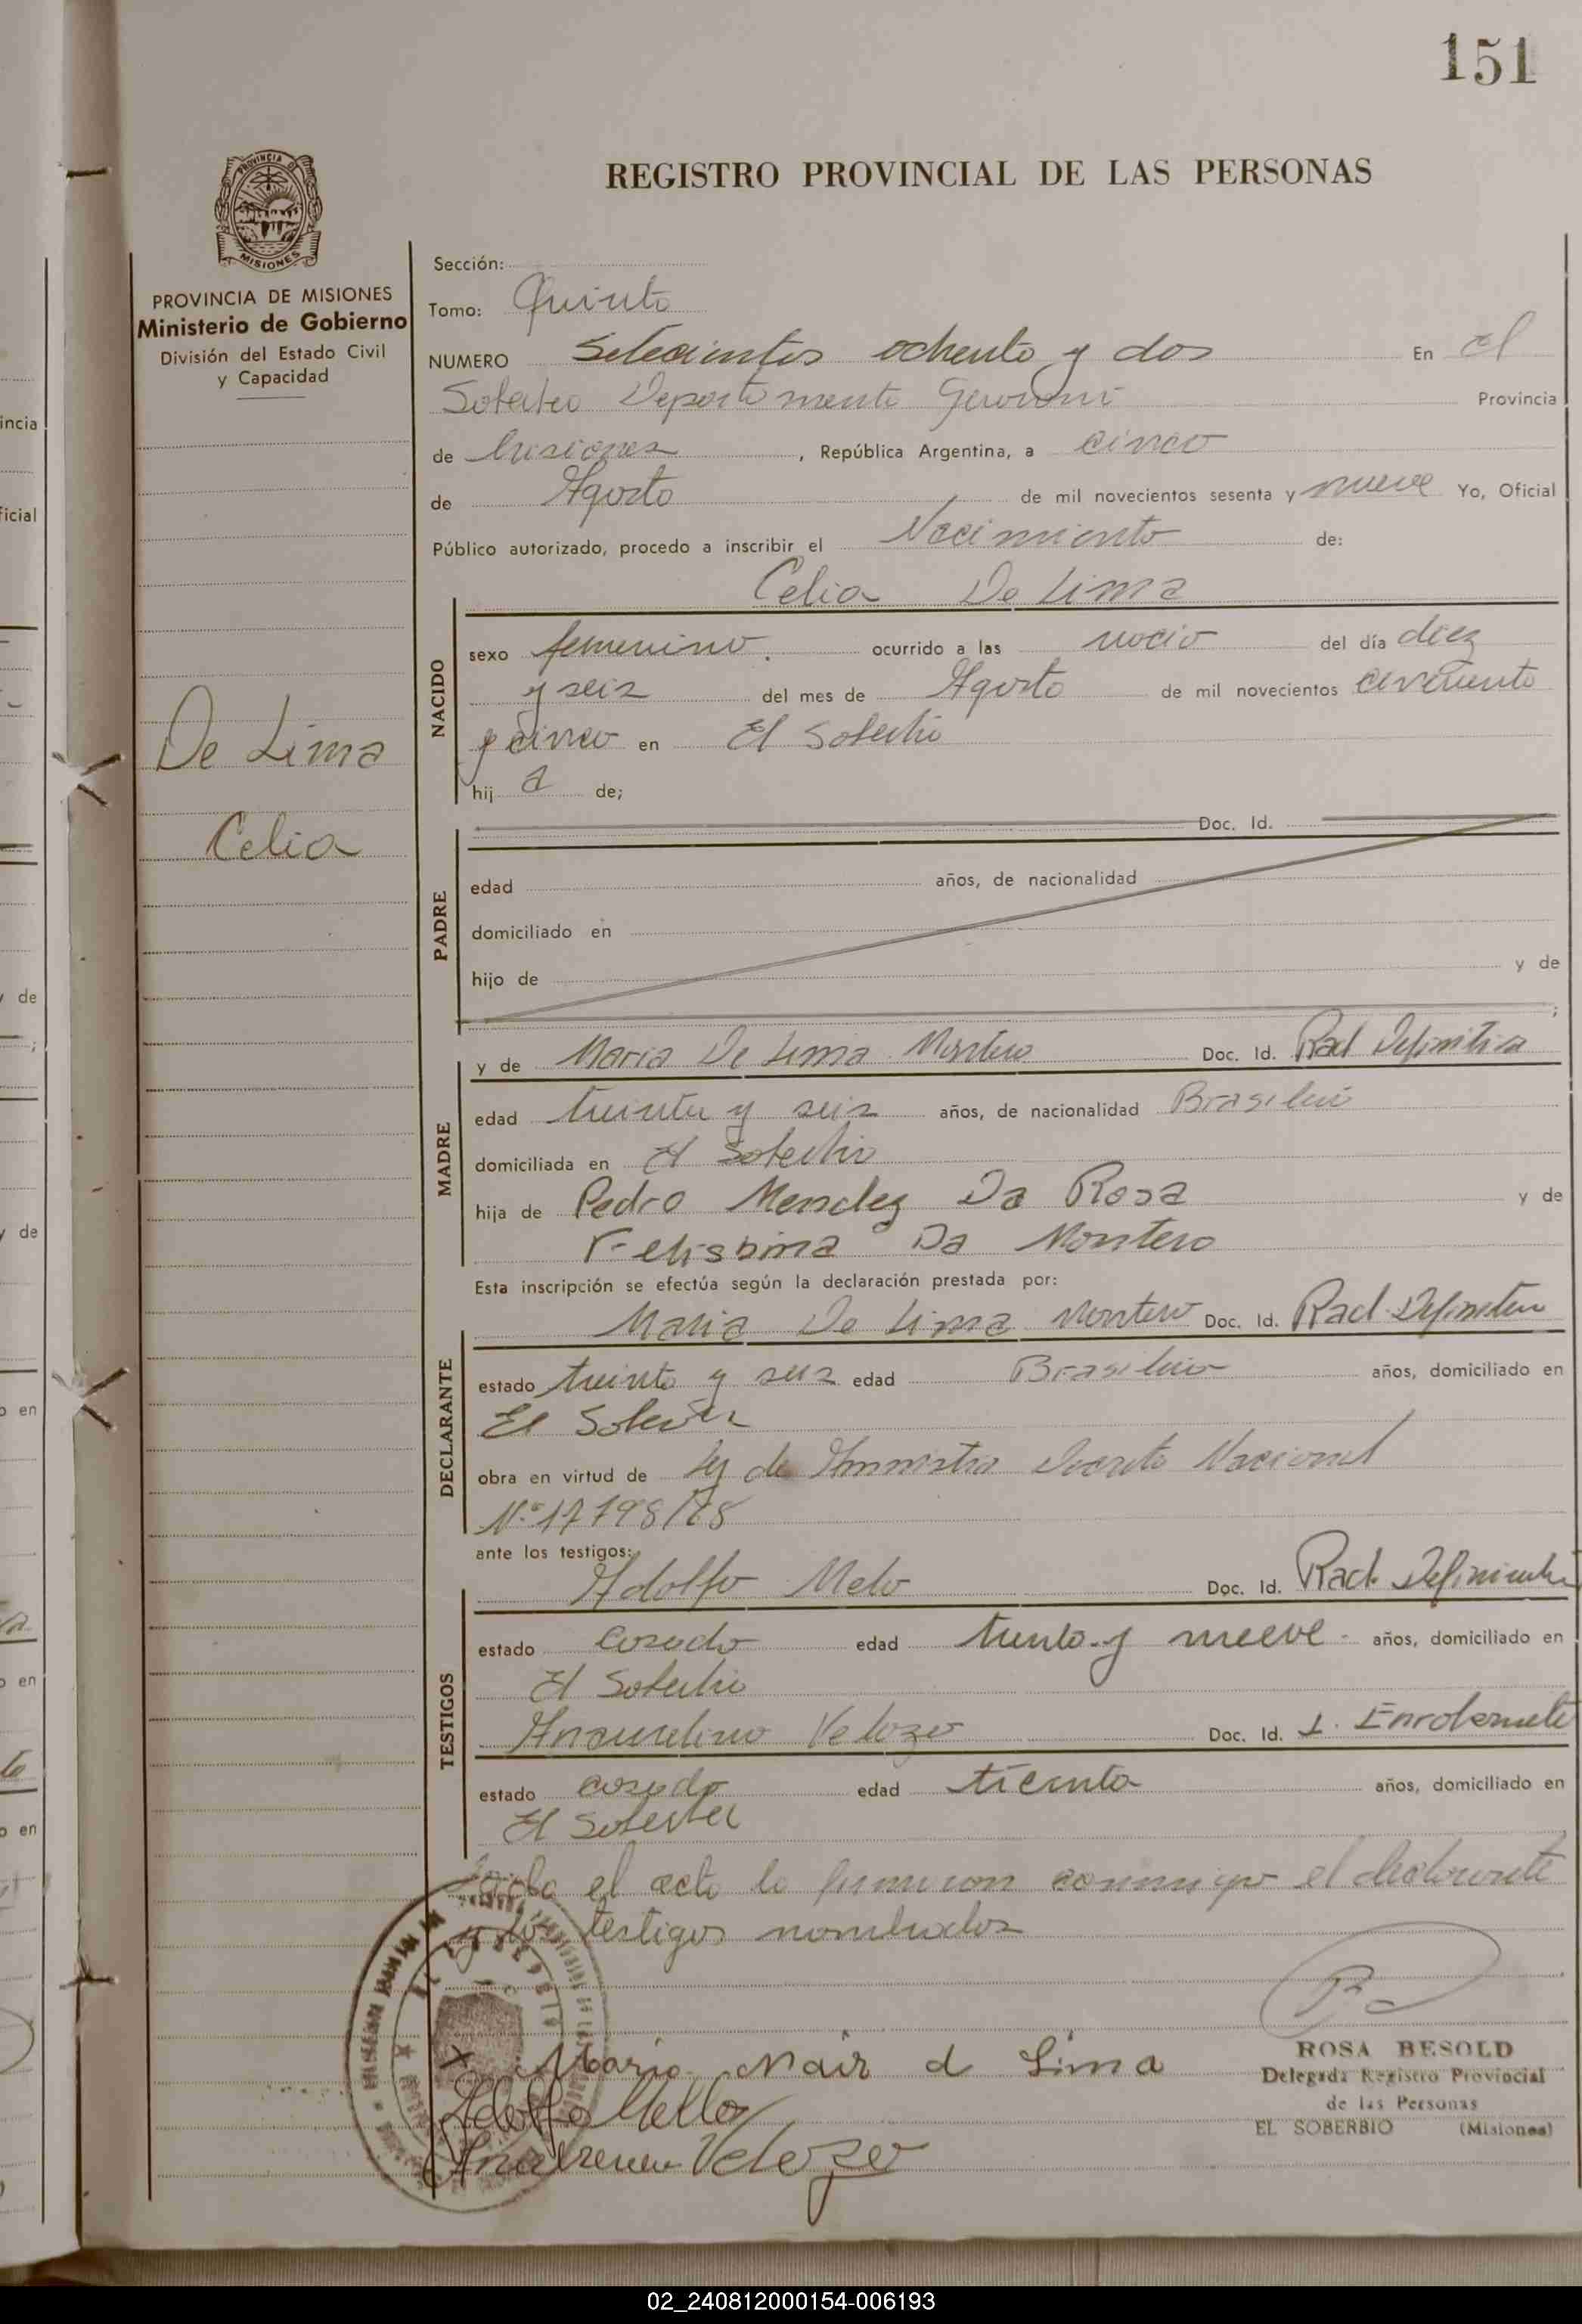 151
REGISTRO PROVINCIAL DE LAS PERSONAS
PROVINCIA DE MISIONES
Ministerio de Gobierno
División del Estado Civil
y Capacidad
Sección:
Tomo: Quinto
NUMERO Setecientos ochenta y dos En El
Soberbio Departamento Guarani Provincia
de Misiones, República Argentina, a cinco
de Agosto de mil novecientos sesenta y nueve Yo, Oficial
Público autorizado, procedo a inscribir el Nacimiento de:
Celia De Lima
NACIDO
sexo femenino. ocurrido a las del día diez
y seis del mes de Agosto de mil novecientos cincuenta
y cinco en El Soberbio
hij a de;
De Lima
Celia
PADRE
Doc. Id.
edad años, de nacionalidad
domiciliado en
hijo de y de
;
MADRE
y de Maria De Lima Montero Doc. Id. Rad Definitiva
edad treinta y seis años, de nacionalidad
domiciliada en El Soberbio
hija de Pedro Mendez Da Rosa y de
Felisbina Da Montero
Esta inscripción se efectúa según la declaración prestada por:
DECLARANTE
Maria De Lima Montero Doc. Id. Rad.
estado treinta y seis edad años, domiciliado en
El Soberbio
obra en virtud de Ley de Amnistia Decreto Nacional
ante los testigos:
TESTIGOS
Adolfo Melo Doc. Id. Rad.
estado casado edad treinta y nueve años, domiciliado en
El Soberbio
Velozo Doc. Id. L.
estado casado edad treinta años, domiciliado en
El Soberbio
el acto lo firmaron conmigo el declarante
y los testigos nombrados
Maria Nair d Lima
Adolfo Mello
Velozo
ROSA BESOLD
Delegada Registro Provincial
de las Personas
EL SOBERBIO (Misiones)
02_240812000154-006193